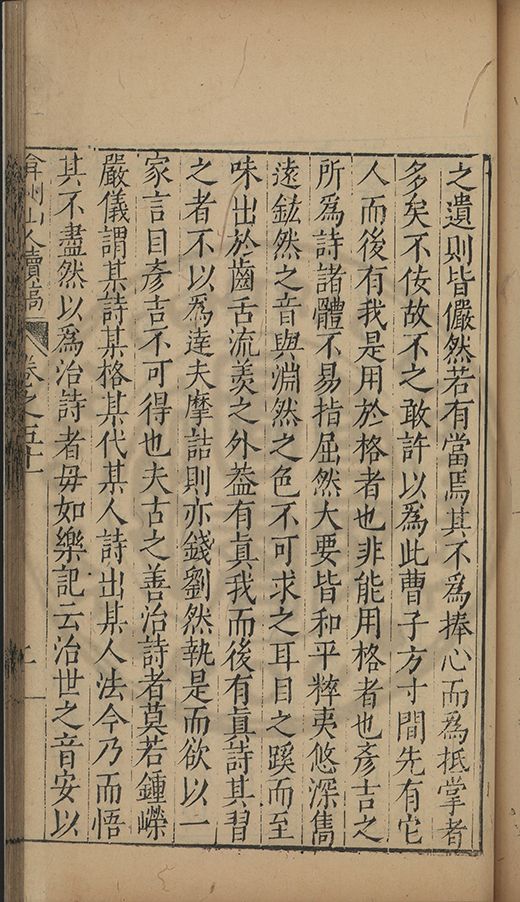 之遺則皆儼然若有當焉其不爲捧心而爲抵掌者
多矣不佞故不之敢許以爲此曹子方寸間先有它
人而後有我是用於格者也非能用格者也彥吉之
所爲詩諸體不易指屈然大要皆和平粹夷悠深雋
遠鋐然之音與淵然之色不可求之耳目之蹊而至
味出於齒舌流羨之外葢有眞我而後有眞詩其習
之者不以爲達夫摩詰則亦錢劉然執是而欲以一
家言目彥吉不可得也夫古之善治詩者莫若鍾嶸
嚴儀謂某詩某格某代某人詩出某人法今乃而悟
其不盡然以爲治詩者毋如樂記云治世之音安以
弇州山人續稿 卷之五十一